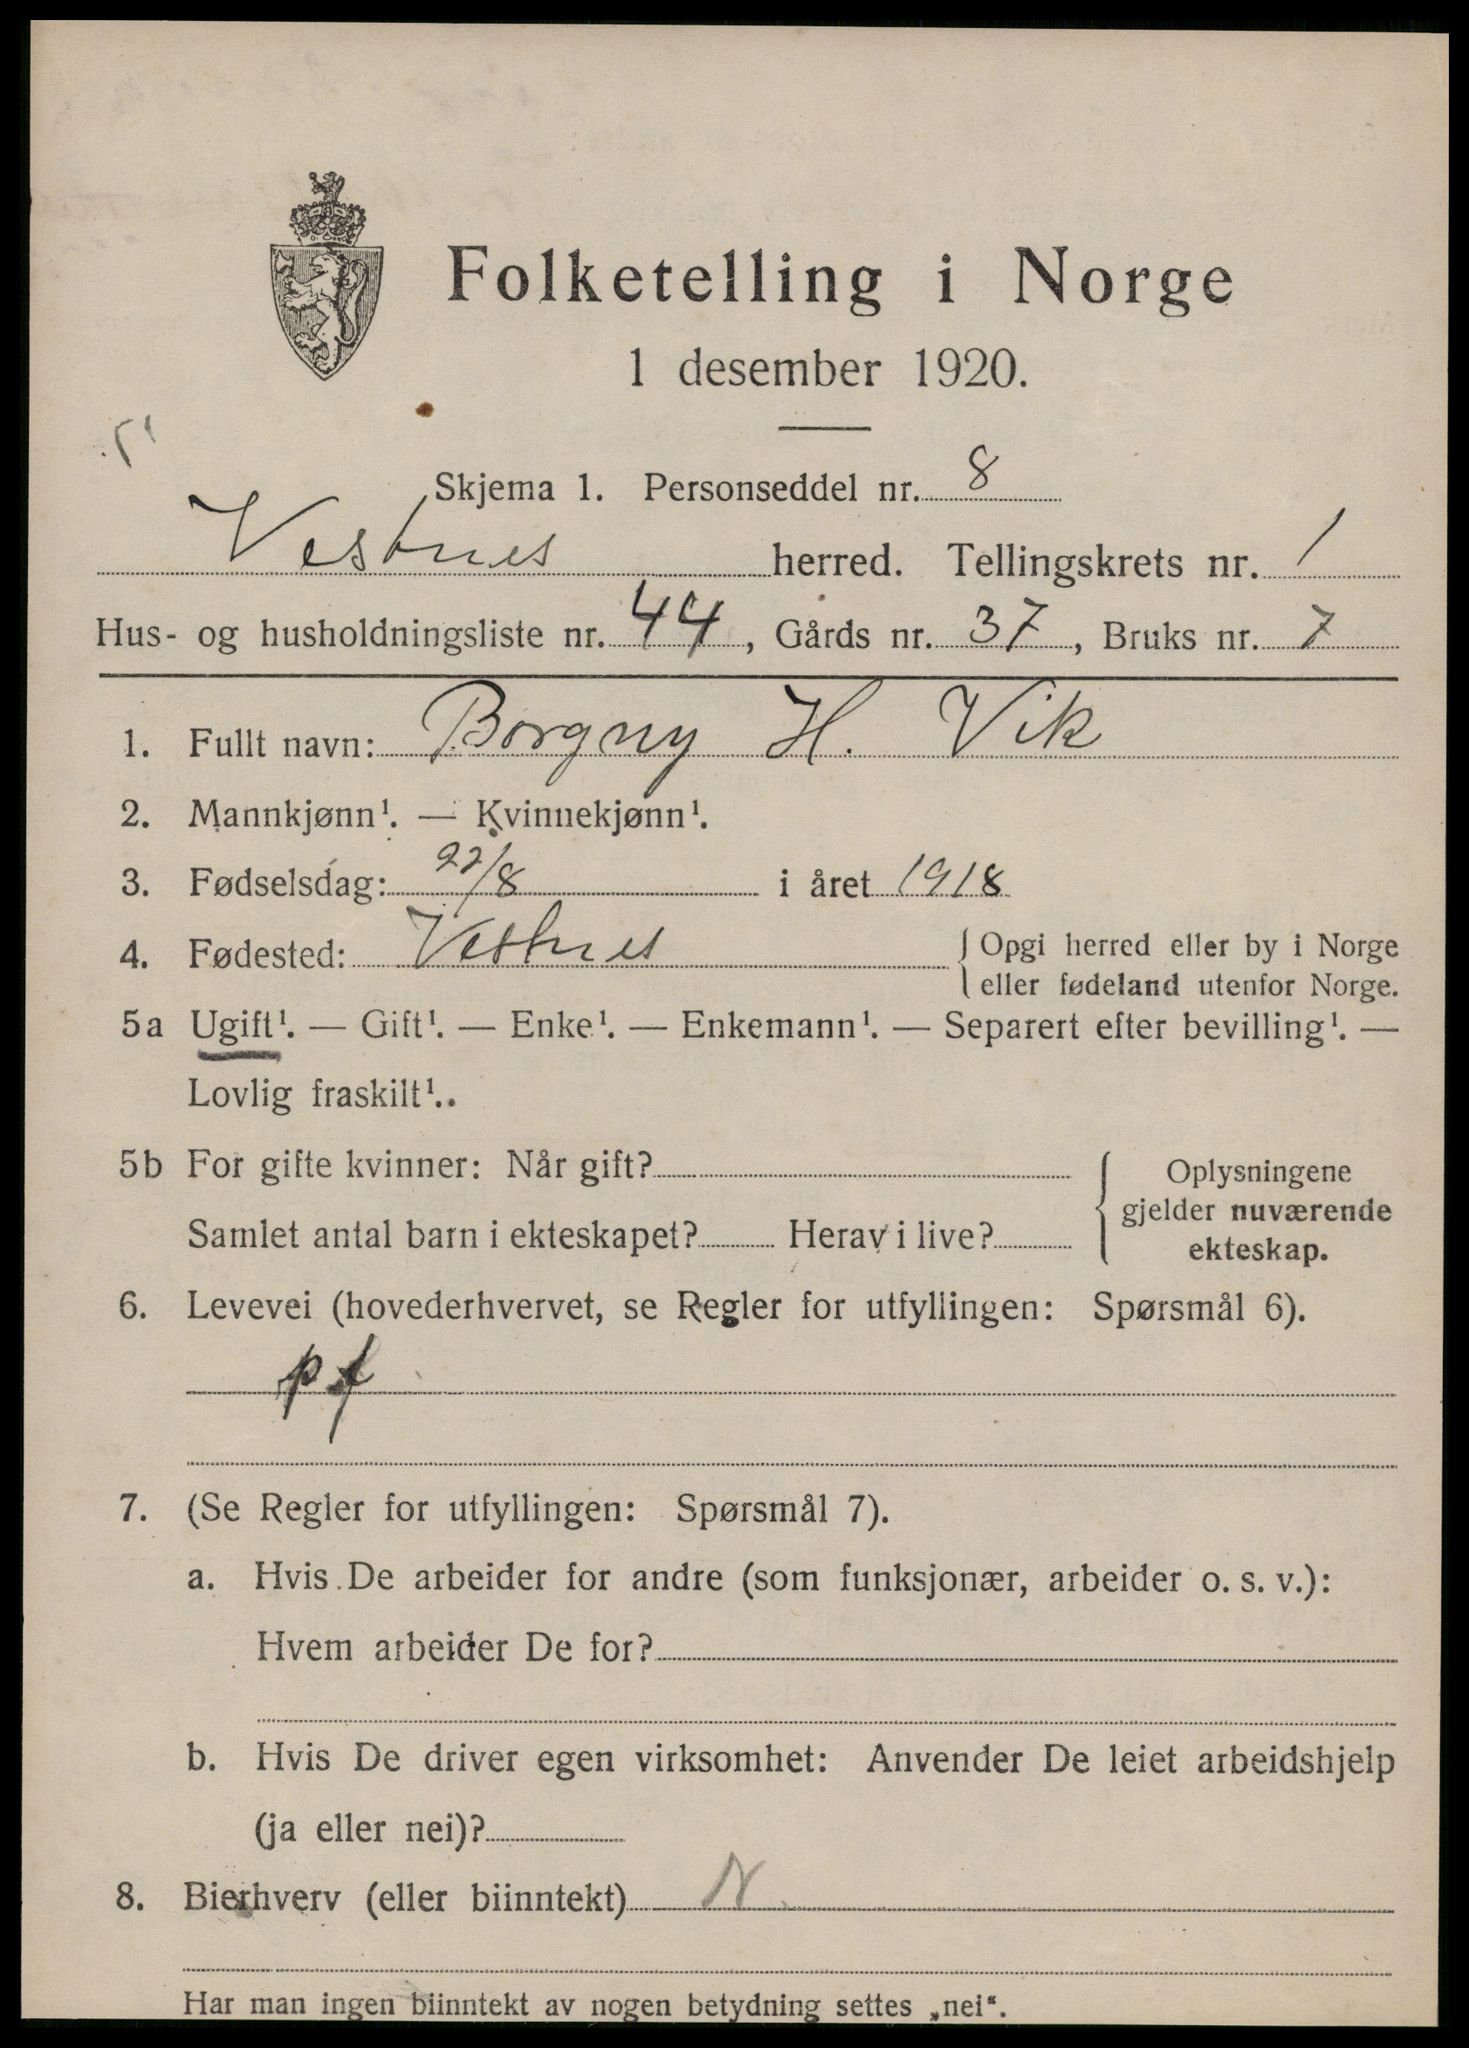 Folketelling i Norge
1 desember 1920.
Skjema 1. Personseddel nr. 8
Vestnes herred. Tellingskrets nr. 1
Hus- og husholdningsliste nr. 44, Gårds nr. 37, Bruks nr. 7
1. Fullt navn: Borgny H. Vik
2. Mannkjønn¹. — Kvinnekjønn¹.
3. Fødselsdag: 22/8 i året 1918
4. Fødested: Vestnes { Opgi herred eller by i Norge
eller fødeland utenfor Norge.
5a Ugift¹. — Gift¹. — Enke¹. — Enkemann¹. — Separert efter bevilling¹. —
Lovlig fraskilt¹..
5b For gifte kvinner: Når gift?
Samlet antal barn i ekteskapet? Herav i live?
{ Oplysningene
gjelder nuværende
ekteskap.
6. Levevei (hovederhvervet, se Regler for utfyllingen: Spørsmål 6).
pf
7. (Se Regler for utfyllingen: Spørsmål 7).
a. Hvis De arbeider for andre (som funksjonær, arbeider o. s. v.):
Hvem arbeider De for?
b. Hvis De driver egen virksomhet: Anvender De leiet arbeidshjelp
(ja eller nei)?
8. Bierhverv (eller biinntekt) N
Har man ingen biinntekt av nogen betydning settes „nei“.